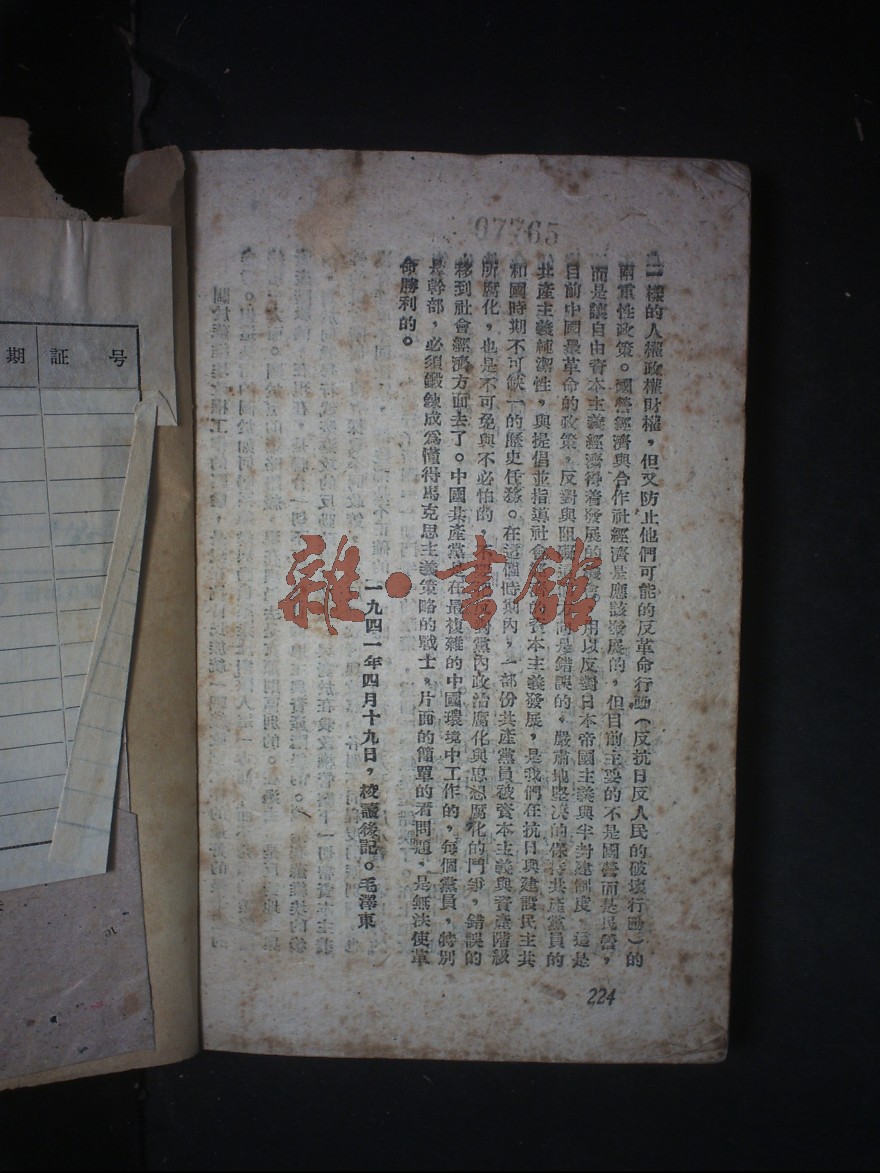 07765
一樣的人權政權財權，但又防止他們可能的反革命行動（反抗日反人民的破壞行動）的
兩重性政策。國營經濟與合作社經濟是應該發展的，但目前主要的不是國營而是民營，
而是讓自由資本主義經濟得着發展的機會，用以反對日本帝國主義與半封建制度，這是
目前中國最革命的政策，反對與阻 是錯誤的。嚴肅地堅決的保 共產黨員的
共產主義純潔性，與提倡並指導社會 的資本主義發展，是我們在抗日與建設民主共
和國時期不可缺一的歷史任務。在這個時期內，一部份共產黨員被資本主義與資產階級
所腐化，也是不可免與不必怕的， 黨內政治腐化與思想腐化的鬥爭，錯誤的
移到社會經濟方面去了。中國共產黨是在最複雜的中國環境中工作的，每個黨員，特別
是幹部，必須鍛鍊成爲懂得馬克思主義策略的戰士，片面的簡單的看問題，是無法使革
命勝利的。
一九四一年四月十九日，校讀後記。毛澤東
224
雜·書館
期 証 号